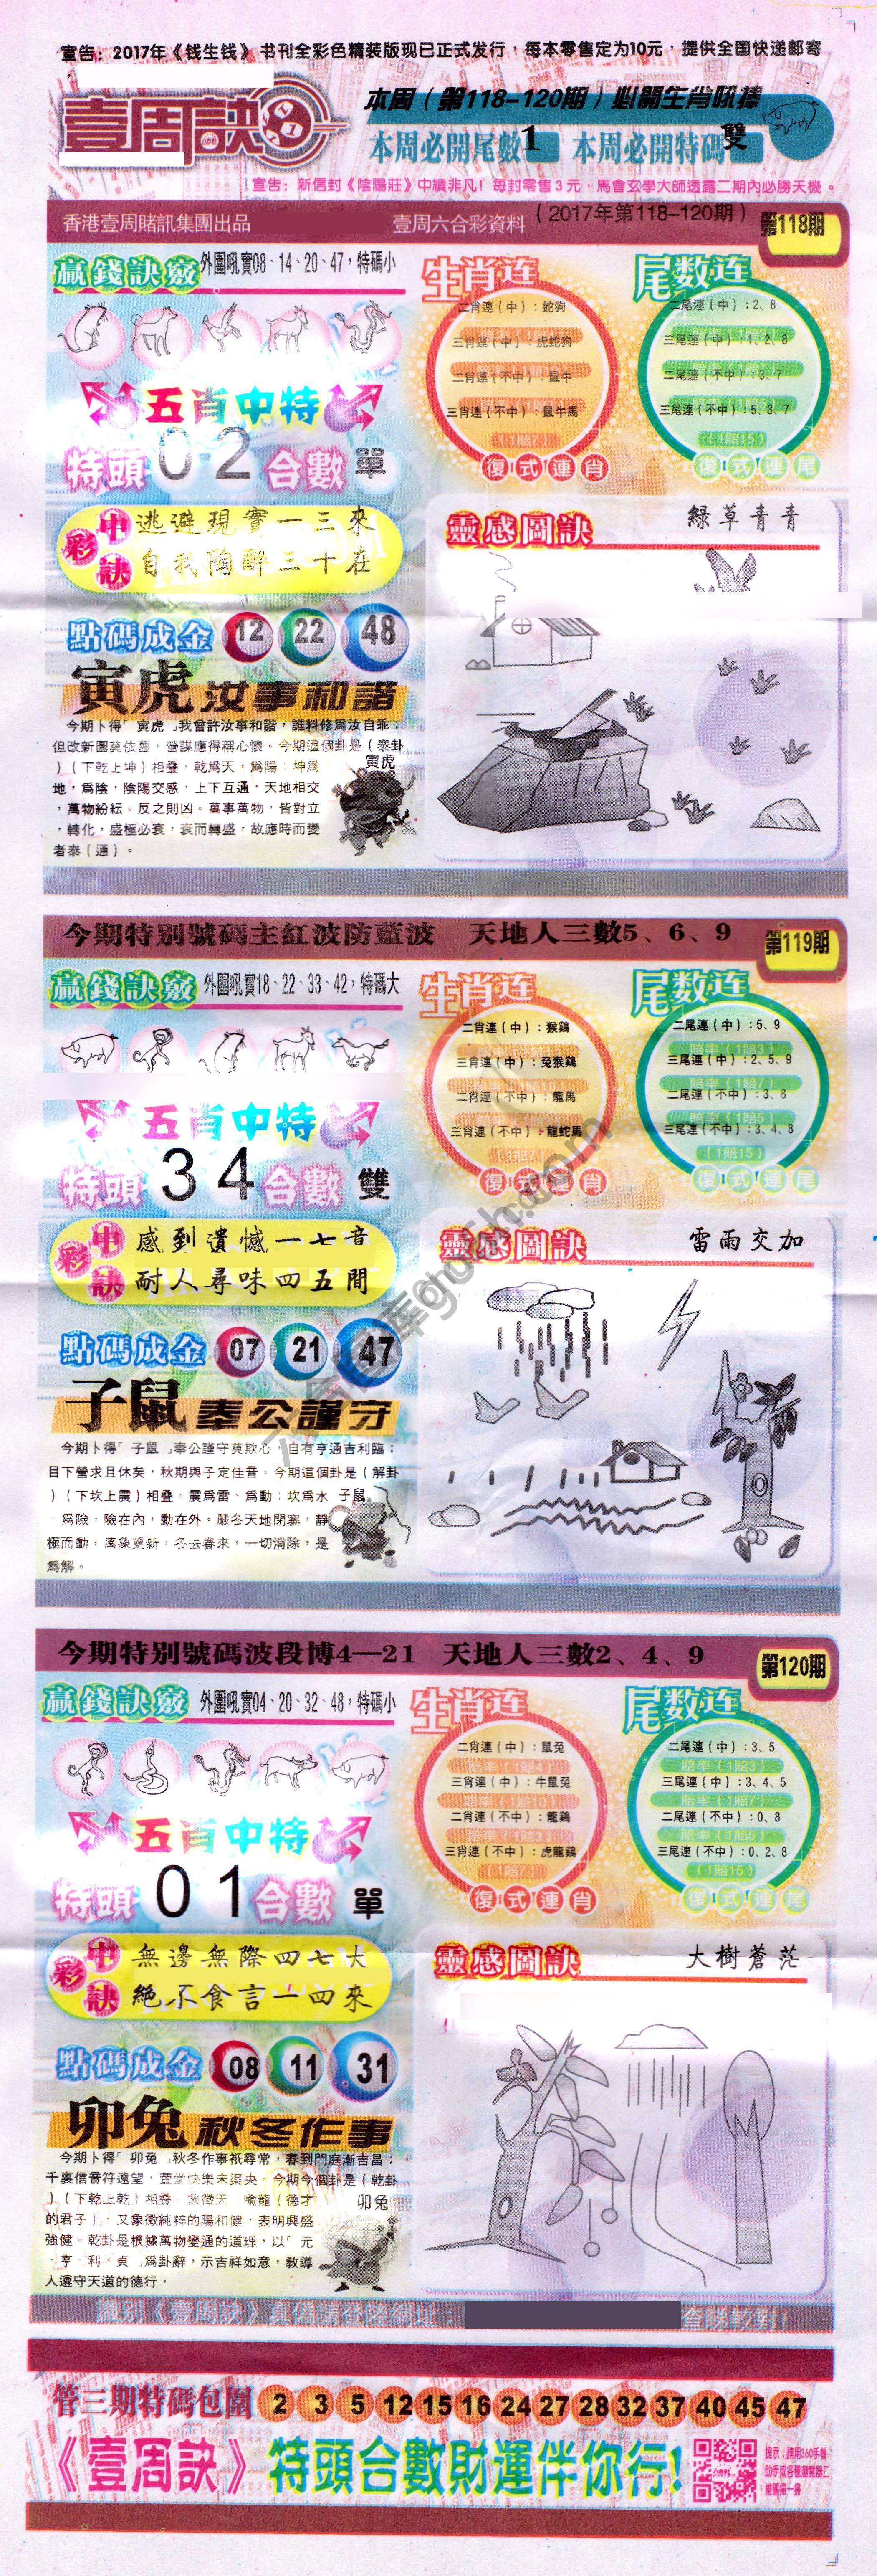 宣告：2017年《钱生钱》书刊全彩色精装版现已正式发行，每本零售定为10元，提供全国快递邮寄
壹周訣
本周（第118-120期）必開生肖吼豬
本周必開尾數1 本周必開特碼雙
宣告：新信封《陰陽莊》中績非凡！每封零售3元，馬會玄學大師透露二期內必勝天機。
香港壹周賭訊集團出品 壹周六合彩資料（2017年第118-120期） 第118期
贏錢訣竅 外圍吼實08、14、20、47，特碼小
五肖中特
特頭 02 合數 單
中彩訣
逃避現實一三來
自我陶醉三十在
點碼成金 12 22 48
寅虎 汝事和諧
今期卜得「寅虎」我曾許汝事和諧，誰料修爲汝自乖；
但改新圖莫依舊，營謀應得稱心懷。今期這個卦是（泰卦
）（下乾上坤）相疊，乾爲天，爲陽；坤爲
寅虎
地，爲陰，陰陽交感，上下互通，天地相交
，萬物紛紜。反之則凶。萬事萬物，皆對立
，轉化，盛極必衰，衰而轉盛，故應時而變
者泰（通）。
生肖连
二肖連（中）：蛇狗
賠率（1賠4）
三肖連（中）：虎蛇狗
賠率（1賠10）
二肖連（不中）：鼠牛
賠率（1賠3）
三肖連（不中）：鼠牛馬
（1賠7）
復式連肖
尾数连
二尾連（中）：2、8
賠率（1賠3）
三尾連（中）：1、2、8
賠率（1賠7）
二尾連（不中）：3、7
賠率（1賠5）
三尾連（不中）：5、3、7
（1賠15）
復式連尾
靈感圖訣 綠草青青
今期特别號碼主紅波防藍波 天地人三數5、6、9 第119期
贏錢訣竅 外圍吼實18、22、33、42，特碼大
五肖中特
特頭 34 合數 雙
中彩訣
感到遺憾一七音
耐人尋味四五間
點碼成金 07 21 47
子鼠 奉公謹守
今期卜得「子鼠」奉公謹守莫欺心，自有亨通吉利臨；
目下營求且休矣，秋期與子定佳音。今期這個卦是（解卦
）（下坎上震）相疊。震爲雷，爲動；坎爲水
子鼠
爲險，險在內，動在外。嚴冬天地閉塞，靜
極而動。萬象更新，冬去春來，一切消除，是
爲解。
生肖连
二肖連（中）：猴鷄
三肖連（中）：兔猴鷄
賠率（1賠10）
二肖連（不中）：龍馬
三肖連（不中）：龍蛇馬
（1賠7）
復式連肖
尾数连
二尾連（中）：5、9
賠率（1賠3）
三尾連（中）：2、5、9
賠率（1賠7）
二尾連（不中）：3、8
賠率（1賠5）
三尾連（不中）：3、4、8
（1賠15）
復式連尾
靈感圖訣 雷雨交加
今期特别號碼波段博4—21 天地人三數2、4、9 第120期
贏錢訣竅 外圍吼實04、20、32、48，特碼小
五肖中特
特頭 01 合數 單
中彩訣
無邊無際四七大
絕不食言一四來
點碼成金 08 11 31
卯兔 秋冬作事
今期卜得「卯兔」秋冬作事衹尋常，春到門庭漸吉昌；
千裏信音符遠望，萱堂快樂未渠央。今期今個卦是（乾卦
）（下乾上乾）相疊。象徵天，喻龍（德才
卯兔
的君子），又象徵純粹的陽和健，表明興盛
強健。乾卦是根據萬物變通的道理，以「元
、亨、利、貞」爲卦辭，示吉祥如意，教導
人遵守天道的德行，
生肖连
二肖連（中）：鼠兔
賠率（1賠4）
三肖連（中）：牛鼠兔
賠率（1賠10）
二肖連（不中）：龍鷄
賠率（1賠3）
三肖連（不中）：虎龍鷄
（1賠7）
復式連肖
尾数连
二尾連（中）：3、5
賠率（1賠3）
三尾連（中）：3、4、5
賠率（1賠7）
二尾連（不中）：0、8
賠率（1賠5）
三尾連（不中）：0、2、8
（1賠15）
復式連尾
靈感圖訣 大樹蒼茫
識别《壹周訣》真僞請登陸網址： 查睇較對！
管三期特碼包圍 2 3 5 12 15 16 24 27 28 32 37 40 45 47
《壹周訣》特頭合數財運伴你行！
提示：請用360手機
助手或各種瀏覽器二
維碼掃一掃